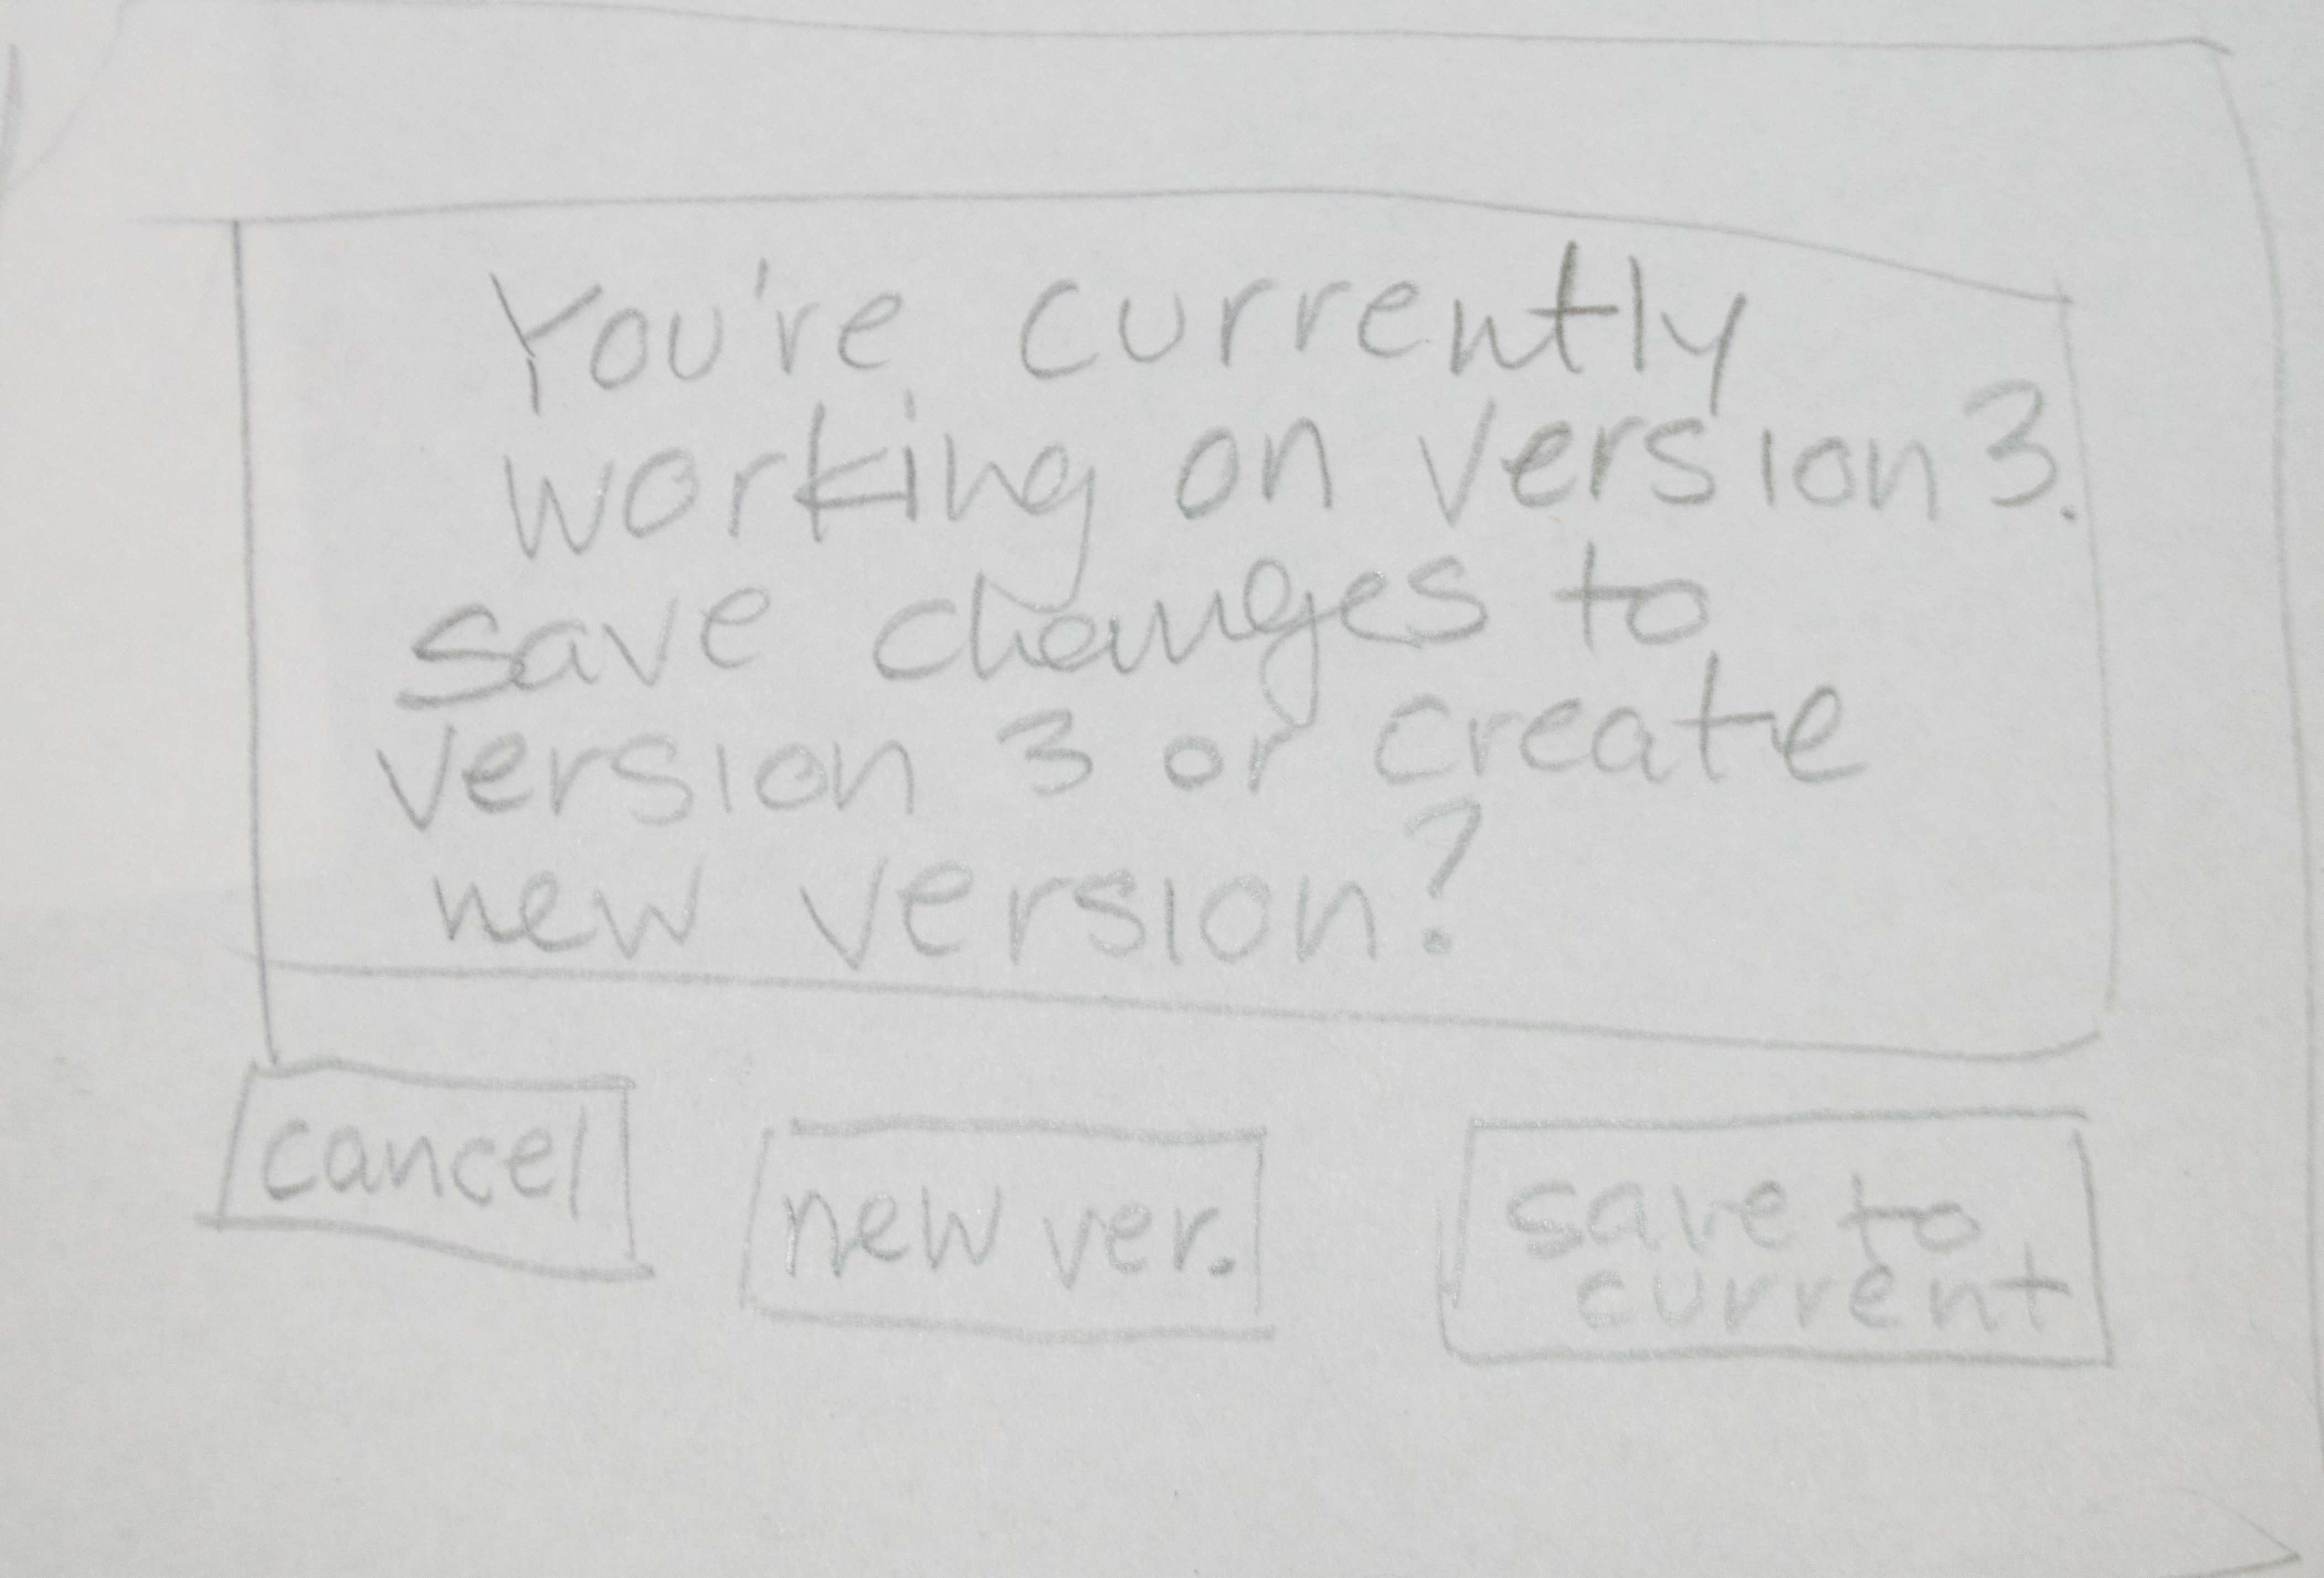 You're currently
working on version 3.
save changes to
version 3 or create
new version?
cancel
new ver.
save to
current